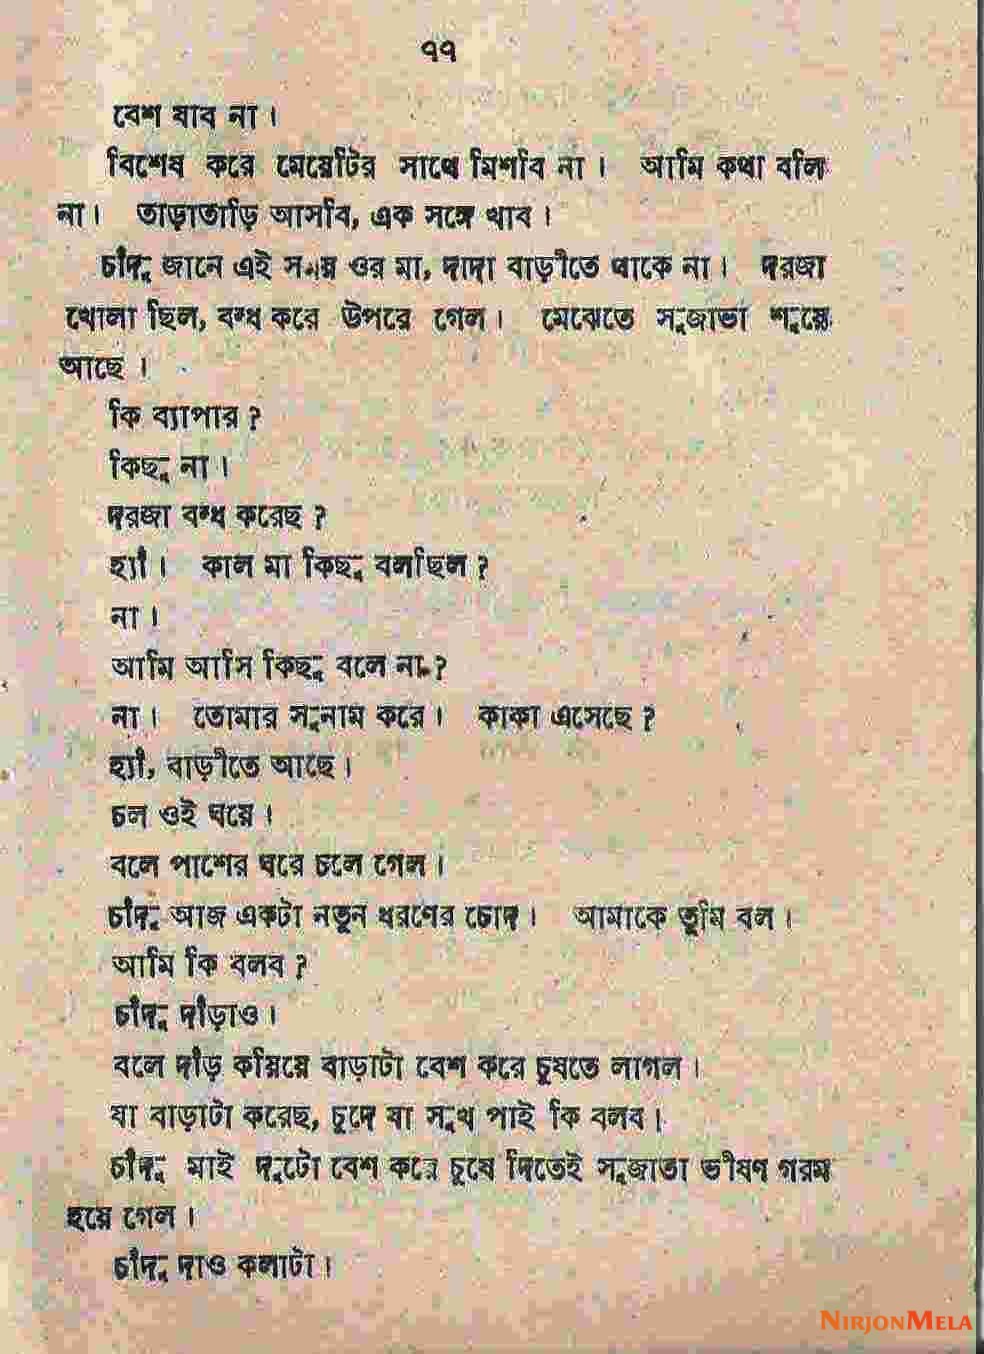 ৭৭
বেশ যাব না।
বিশেষ করে মেয়েটির সাথে মিশবি না। আমি কথা বলি
না। তাড়াতাড়ি আসবি, এক সঙ্গে খাব।
চাঁদু জানে এই সময় ওর মা, দাদা বাড়ীতে থাকে না। দরজা
খোলা ছিল, বন্ধ করে উপরে গেল। মেঝেতে সুজাতা শুয়ে
আছে।
কি ব্যাপার?
কিছু না।
দরজা বন্ধ করেছ?
হ্যাঁ। কাল মা কিছু বলছিল?
না।
আমি আসি কিছু বলে না?
না। তোমার সুনাম করে। কাকা এসেছে?
হ্যাঁ, বাড়ীতে আছে।
চল ওই ঘরে।
বলে পাশের ঘরে চলে গেল।
চাঁদু আজ একটা নতুন ধরণের চোদ। আমাকে তুমি বল।
আমি কি বলব?
চাঁদু দাঁড়াও।
বলে দাঁড় করিয়ে বাড়াটা বেশ করে চুষতে লাগল।
যা বাড়াটা করেছ, চুদে যা সুখ পাই কি বলব।
চাঁদু মাই দুটো বেশ করে চুষে দিতেই সুজাতা ভীষণ গরম
হয়ে গেল।
চাঁদু দাও কলাটা।
NIRJONMELA